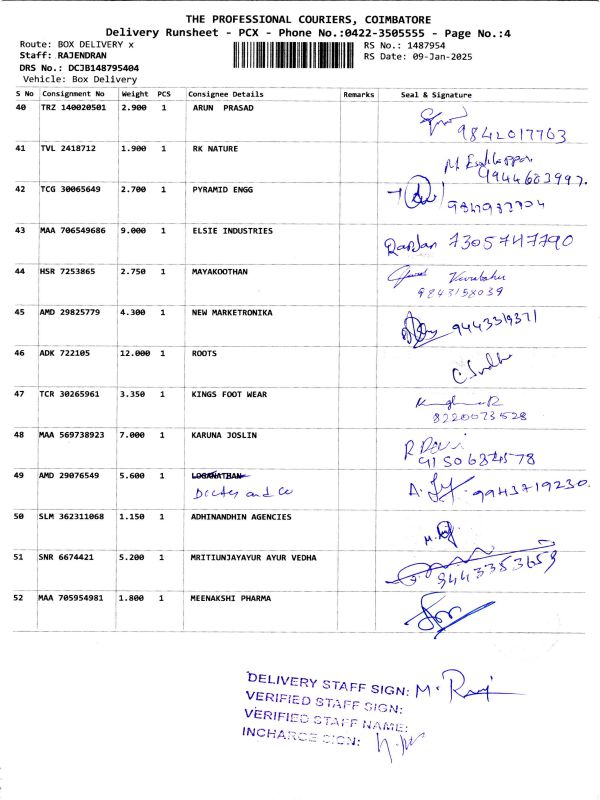 THE PROFESSIONAL COURIERS, COIMBATORE
Delivery Runsheet - PCX - Phone No.:0422-3505555 - Page No.:4
Route: BOX DELIVERY x RS No.: 1487954
Staff: RAJENDRAN RS Date: 09-Jan-2025
DRS No.: DCJB148795404
Vehicle: Box Delivery
S No Consignment No Weight PCS Consignee Details Remarks Seal & Signature
40 TRZ 140020501 2.900 1 ARUN PRASAD
9842017763
41 TVL 2418712 1.900 1 RK NATURE
9944683997.
42 TCG 30065649 2.700 1 PYRAMID ENGG
43 MAA 706549686 9.000 1 ELSIE INDUSTRIES
7305747790
44 HSR 7253865 2.750 1 MAYAKOOTHAN
9843158039
45 AMD 29825779 4.300 1 NEW MARKETRONIKA
9443319371
46 ADK 722105 12.000 1 ROOTS
47 TCR 30265961 3.350 1 KINGS FOOT WEAR
8220073528
48 MAA 569738923 7.000 1 KARUNA JOSLIN
R Devi
49 AMD 29076549 5.600 1 LOGANATHAN
and Co
9943719230.
50 SLM 362311068 1.150 1 ADHINANDHIN AGENCIES
51 SNR 6674421 5.200 1 MRITIUNJAYAYUR AYUR VEDHA
9443353659
52 MAA 705954981 1.800 1 MEENAKSHI PHARMA
DELIVERY STAFF SIGN: M. Raj
VERIFIED STAFF SIGN:
VERIFIED STAFF NAME:
INCHARGE SIGN: